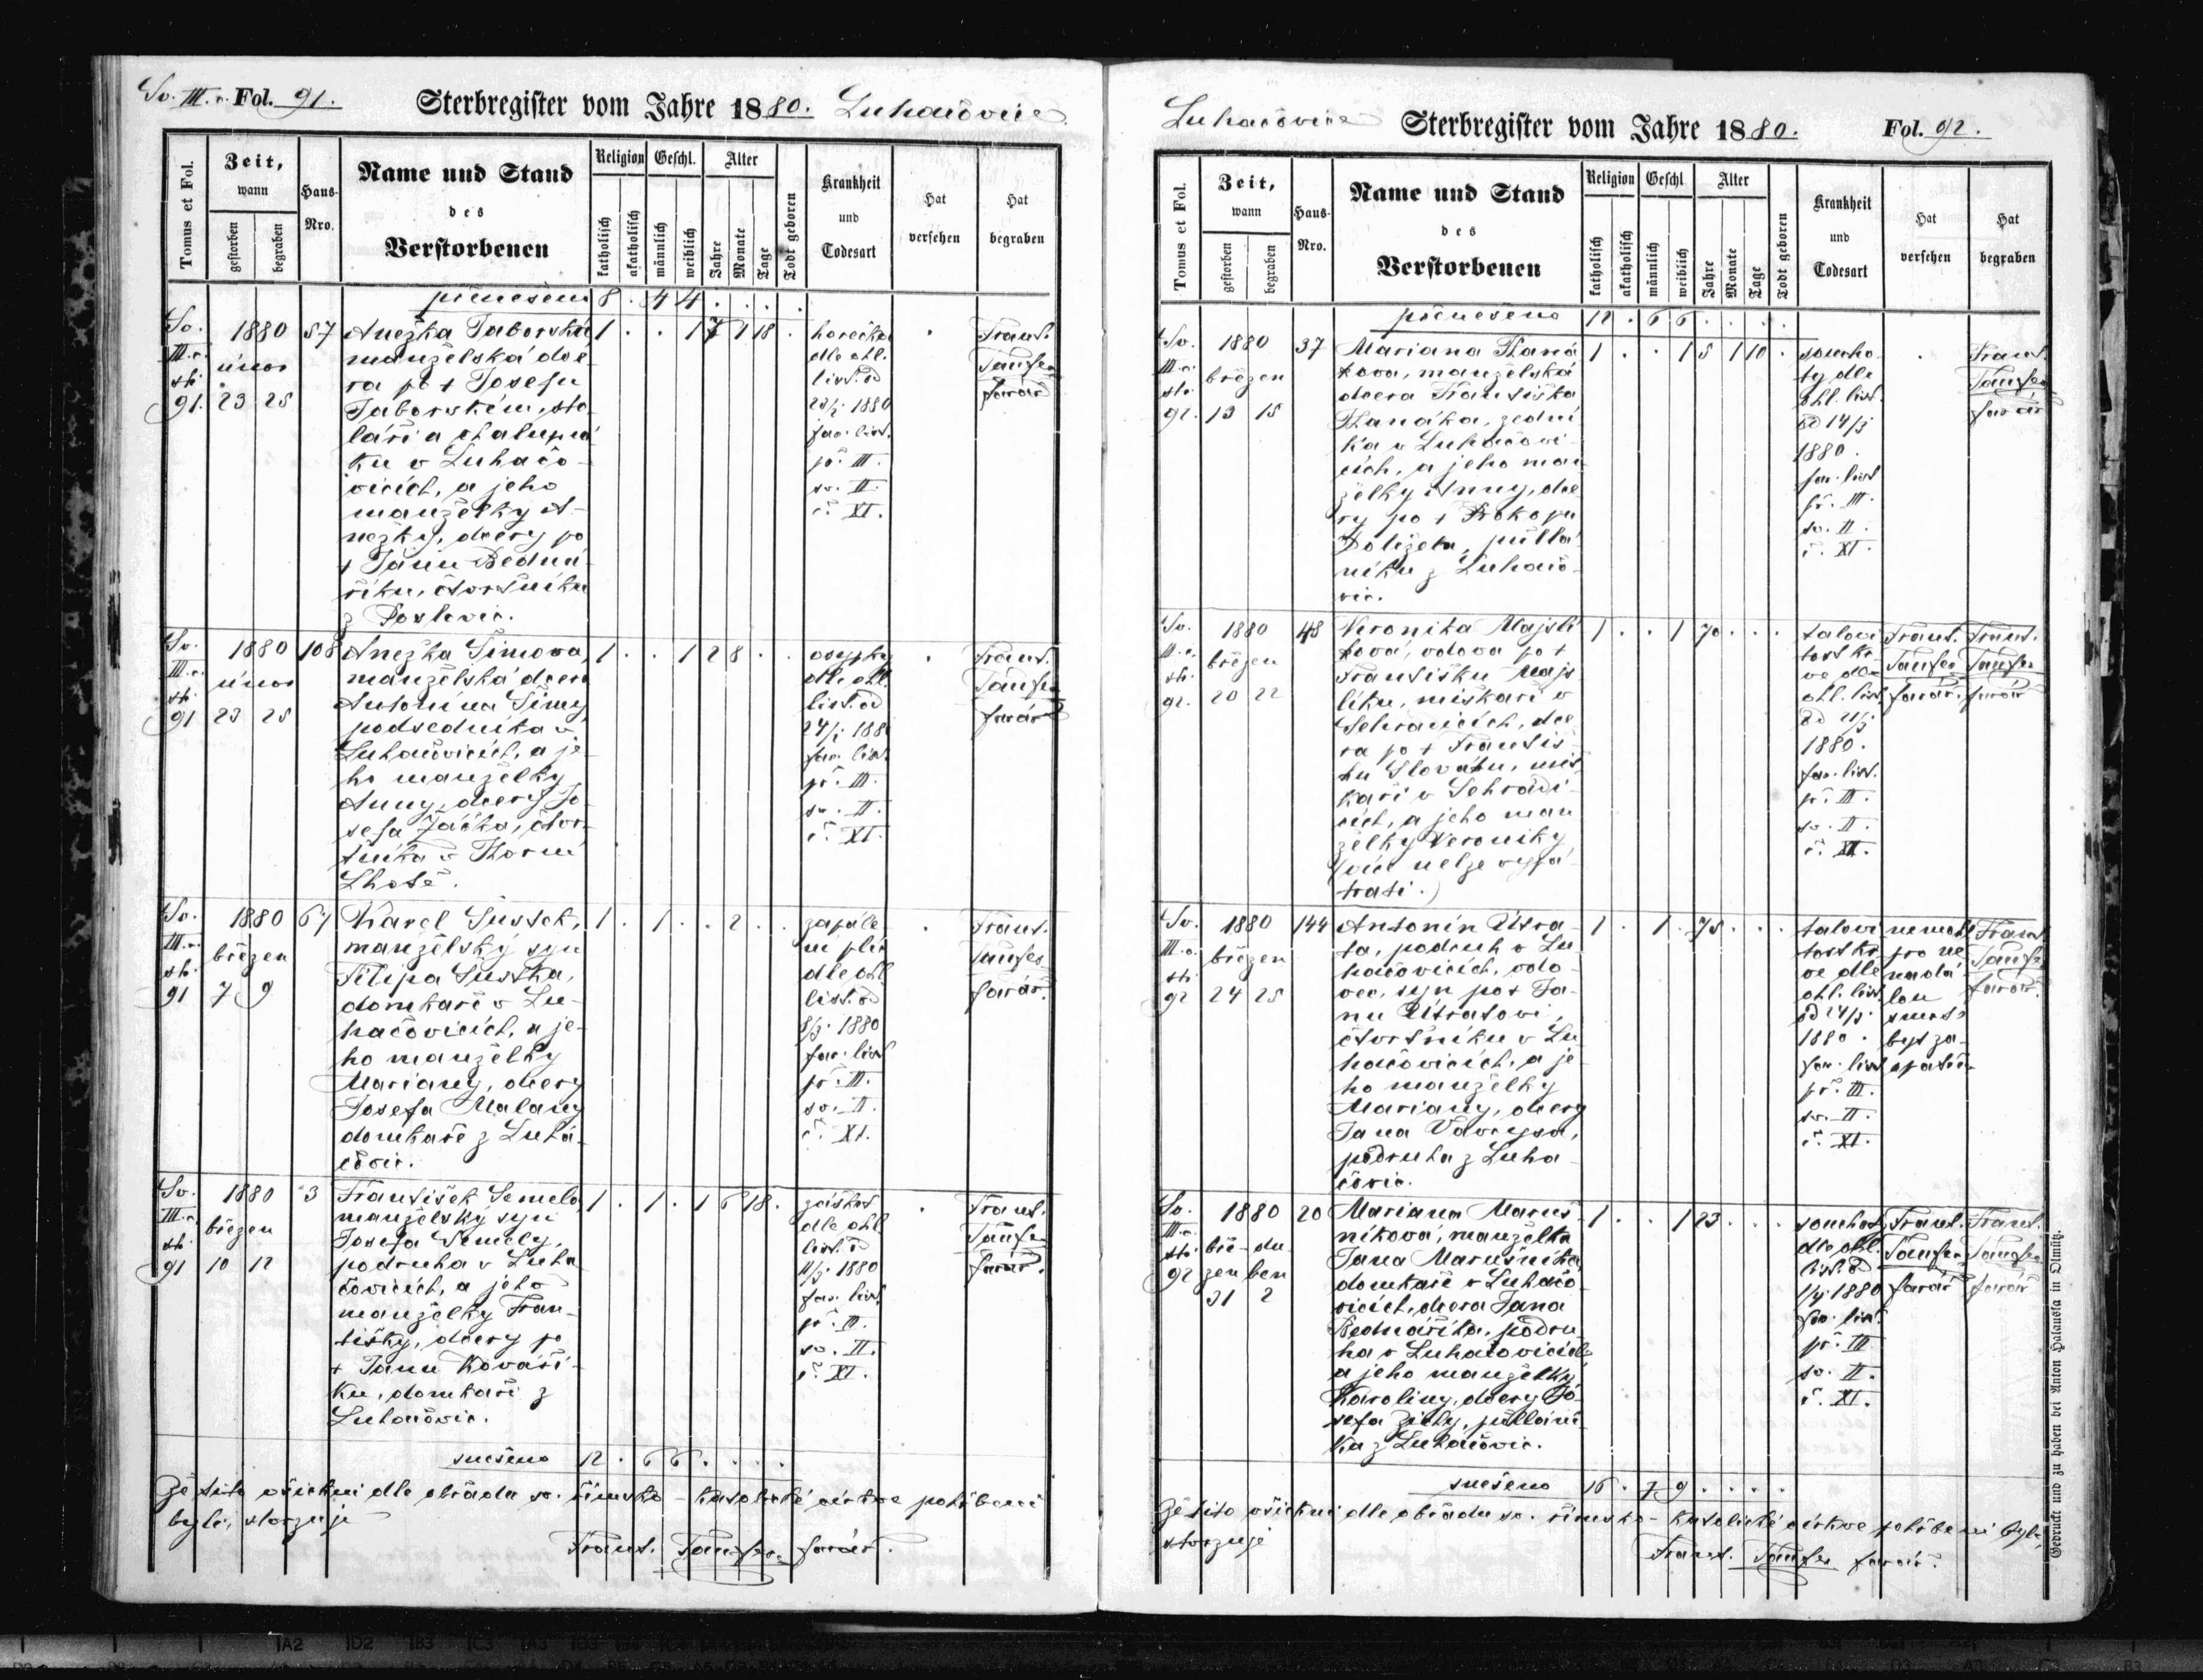 Sv. III. c. Fol. 91.
Sterbregister vom Jahre 1880. Luhačovice
Tomus et Fol.
Zeit, wann
gestorben
begraben
Haus-Nro.
Name und Stand
des
Verstorbenen
Religion
katholisch
akatholisch
Geschl.
männlich
weiblich
Alter
Jahre
Monate
Tage
Todt geboren
Krankheit
und
Todesart
Hat
versehen
Hat
begraben
přenešeno 8 . 4 4 . . . .
Sv. III. c. str. 91.
1880 únor 23 25
57
Anežka Taborská
manželská dce-
ra po † Josefu
Taborském, sto-
láři a chalupní-
ku v Luhačo-
vicích, a jeho
manželky A-
nežky, dcery po
† Janu Bedna-
říku, čtvrtníku
z Poslovic.
1 . . 1 7 1 18 .
horečka
dle ohl.
list. od
1880
far. list.
př. III.
sv. II.
č. XI.
.
Frant.
Täufer
farář
Sv. III. c. str. 91
1880 únor 23 25
108
Anežka Šimova,
manželská dcera
Antonína Šimy,
podsedníka v
Luhačovicích, a je-
ho manželky
Anny, dcery Jo-
sefa Jačka, čtvr-
tníka v Horní
Lhotě.
1 . . 1 2 8 . .
osypky
dle ohl.
list. od
1880
far. list.
př. III.
sv. II.
č. XI.
.
Frant.
Täufer
farář
Sv. III. c. str. 91
1880 březen 7 9
67
Karel Šustek,
manželský syn
Filipa Šustka,
domkaře v Lu-
hačovicích, a je-
ho manželky
Mariany, dcery
Josefa Malany
domkaře z Luha-
čovic.
1 . 1 . . 2 . .
zapále
ní plic
dle ohl.
list. od
8/3 1880
far. list
př. III.
sv. II.
č. XI.
.
Frant.
Täufer
farář.
Sv. III. c. str. 91
1880 březen 10 12
3
František Semela,
manželský syn
Josefa Semely,
podruha v Luha
čovicích, a jeho
manželky Fran-
tišky, dcery po
† Janu Kovaří-
ku, domkaři z
Luhačovic.
1 . 1 . 1 6 18 .
záškrt
dle ohl.
list. od
11/3 1880
far. list.
př. III.
sv. II.
č. XI.
.
Frant.
Täufer
farář.
snešeno 12 . 6 6 . . . .
Že tito všickni dle obřadu sv. římsko-katolické církve pohřbeni
byli, stvrzuje
Frant. Täufer farář.
Luhačovice Sterbregister vom Jahre 1880. Fol. 92.
Tomus et Fol.
Zeit, wann
gestorben
begraben
Haus-Nro.
Name und Stand
des
Verstorbenen
Religion
katholisch
akatholisch
Geschl
männlich
weiblich
Alter
Jahre
Monate
Tage
Todt geboren
Krankheit
und
Todesart
Hat
versehen
Hat
begraben
přenešeno 12 . 6 6 . . . .
Sv. III. c. str. 92.
1880 březen 13 15
37
Mariana Haná
kova, manželská
dcera Františka
Hanáka, zední
ka v Luhačovi-
cích, a jeho man
želky Anny, dce
ry po † Prokopu
Doležela, půllá
níku z Luhačo-
vic.
1 . . 1 5 1 10 .
soucho-
ty dle
ohl. list.
od 14/3
1880.
far. list
př. III.
sv. II.
č. XI.
.
Frant.
Täufer
farář
Sv. III. c. str. 92.
1880 březen 20 22
48
Veronika Majslí
kova, vdova po †
Františku Majs
líku, miškaři v
Sehradicích, dce
ra po † Františ
ku Slovaku, miš
kaři v Sehradi-
cích, a jeho man
želky Veroniky
(více nelze vypá
trati.)
1 . . 1 70 . . .
ohl. list.
1880.
far. list.
př. III.
sv. II.
č. XI.
Frant.
Täufer
farář.
Frant.
Täufer
farář
Sv. III. c. str. 92
1880 březen 24 25
144
Antonín Útra-
ta, podruh v Lu
hačovicích, vdo-
vec, syn po † Ja-
nu Útratovi,
čtvrtníku v Lu
hačovicích, a je-
ho manželky
Mariany, dcery
Jana Vavrysa,
podruha z Luha
čovic.
1 . 1 . 75 . . .
ohl. list.
od 24/3
1880.
far. list
př. III.
sv. II.
č. XI.
nemohl
pro ne
nadá-
lou
smrt
být za-
opatřen
Frant
Täufer
farář.
Sv. III. c. str. 92
1880 bře- du
zen ben
31 2
20
Mariana Maruš-
níkova, manželka
Jana Marušníka,
domkaře v Luhačo
vicích, dcera Jana
Bednaříka, podru
ha v Luhačovicích
a jeho manželky
Karoliny, dcery Jo-
sefa Zichy, půlláni
ka z Luhačovic.
1 . . 1 23 . . .
souchoty
dle ohl.
list. od
1/4 1880
far. list.
př. III
sv. II.
č. XI.
Frant.
Täufer
farář
Frant.
Täufer
farář
snešeno 16 . 7 9 . . . .
Že tito všickni dle obřadu sv. římsko-katolické církve pohřbeni byli,
stvrzuje
Frant. Täufer farář.
Gedruckt und zu haben bei Anton Halauska in Olmütz.